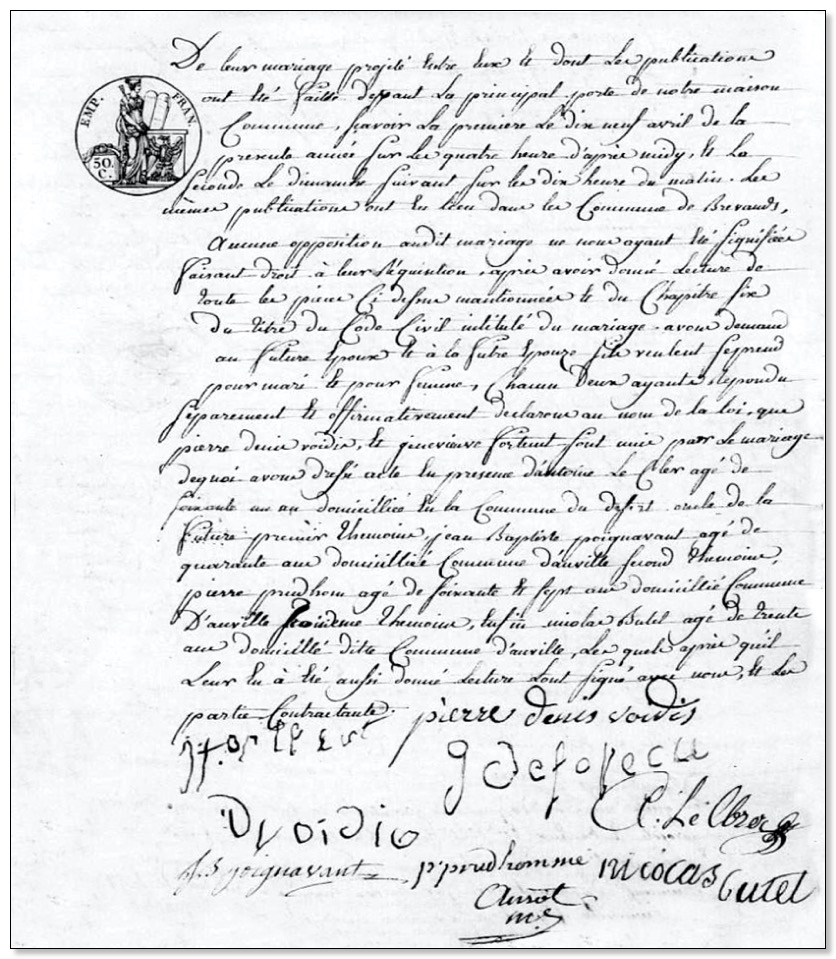 De leur mariage projeté entre eux et dont les publications
ont été faitte devant la principal porte de notre maison
Commune, sçavoir la premiere le dix neuf avril de la
EMP. FRAN
30.
C.
presente année sur les quatre heure d'après midy, et la
seconde le dimanche suivant sur les dix heure du matin. les
mêmes publications ont eu lieu dans la Commune de Brevands,
Aucune opposition audit mariage ne nous ayant été signifiée
faisant droit à leur réquisition, après avoir donné lecture de
toute les pieces ci dessus mantionnée et du Chapitre six
du titre du Code Civil intitulé du mariage avons demandé
au future Epoux et à la futre Epouze s'ils veulent se prend
pour mari et pour femme, Chacun d'eux ayants répondu
séparement et affirmativement declarons au nom de la loi, que
pierre denis voidis, et genevieve fortent sont unis par le mariage
de quoi avons dressé acte en presence d'antoine Le Cler agé de
soixante un an domicillié en la Commune du oncle de la
future premier themoine, jean Baptiste poignavant agé de
quarante ans domicillié Commune d'auville second themoine,
pierre prudhom agé de soixante et sept ans domicillié Commune
D'auville troisieme themoine, enfin nicolas Butel agé de trente
ans domicillié ditte Commune d'auville, les quels après qu'il
leur en à été aussi donné lecture l'ont signé avec nous, et les
partie Contractante pierre denis voidis
voidio
Le Cler
J B poignavant p prudhomme nicolas Butel